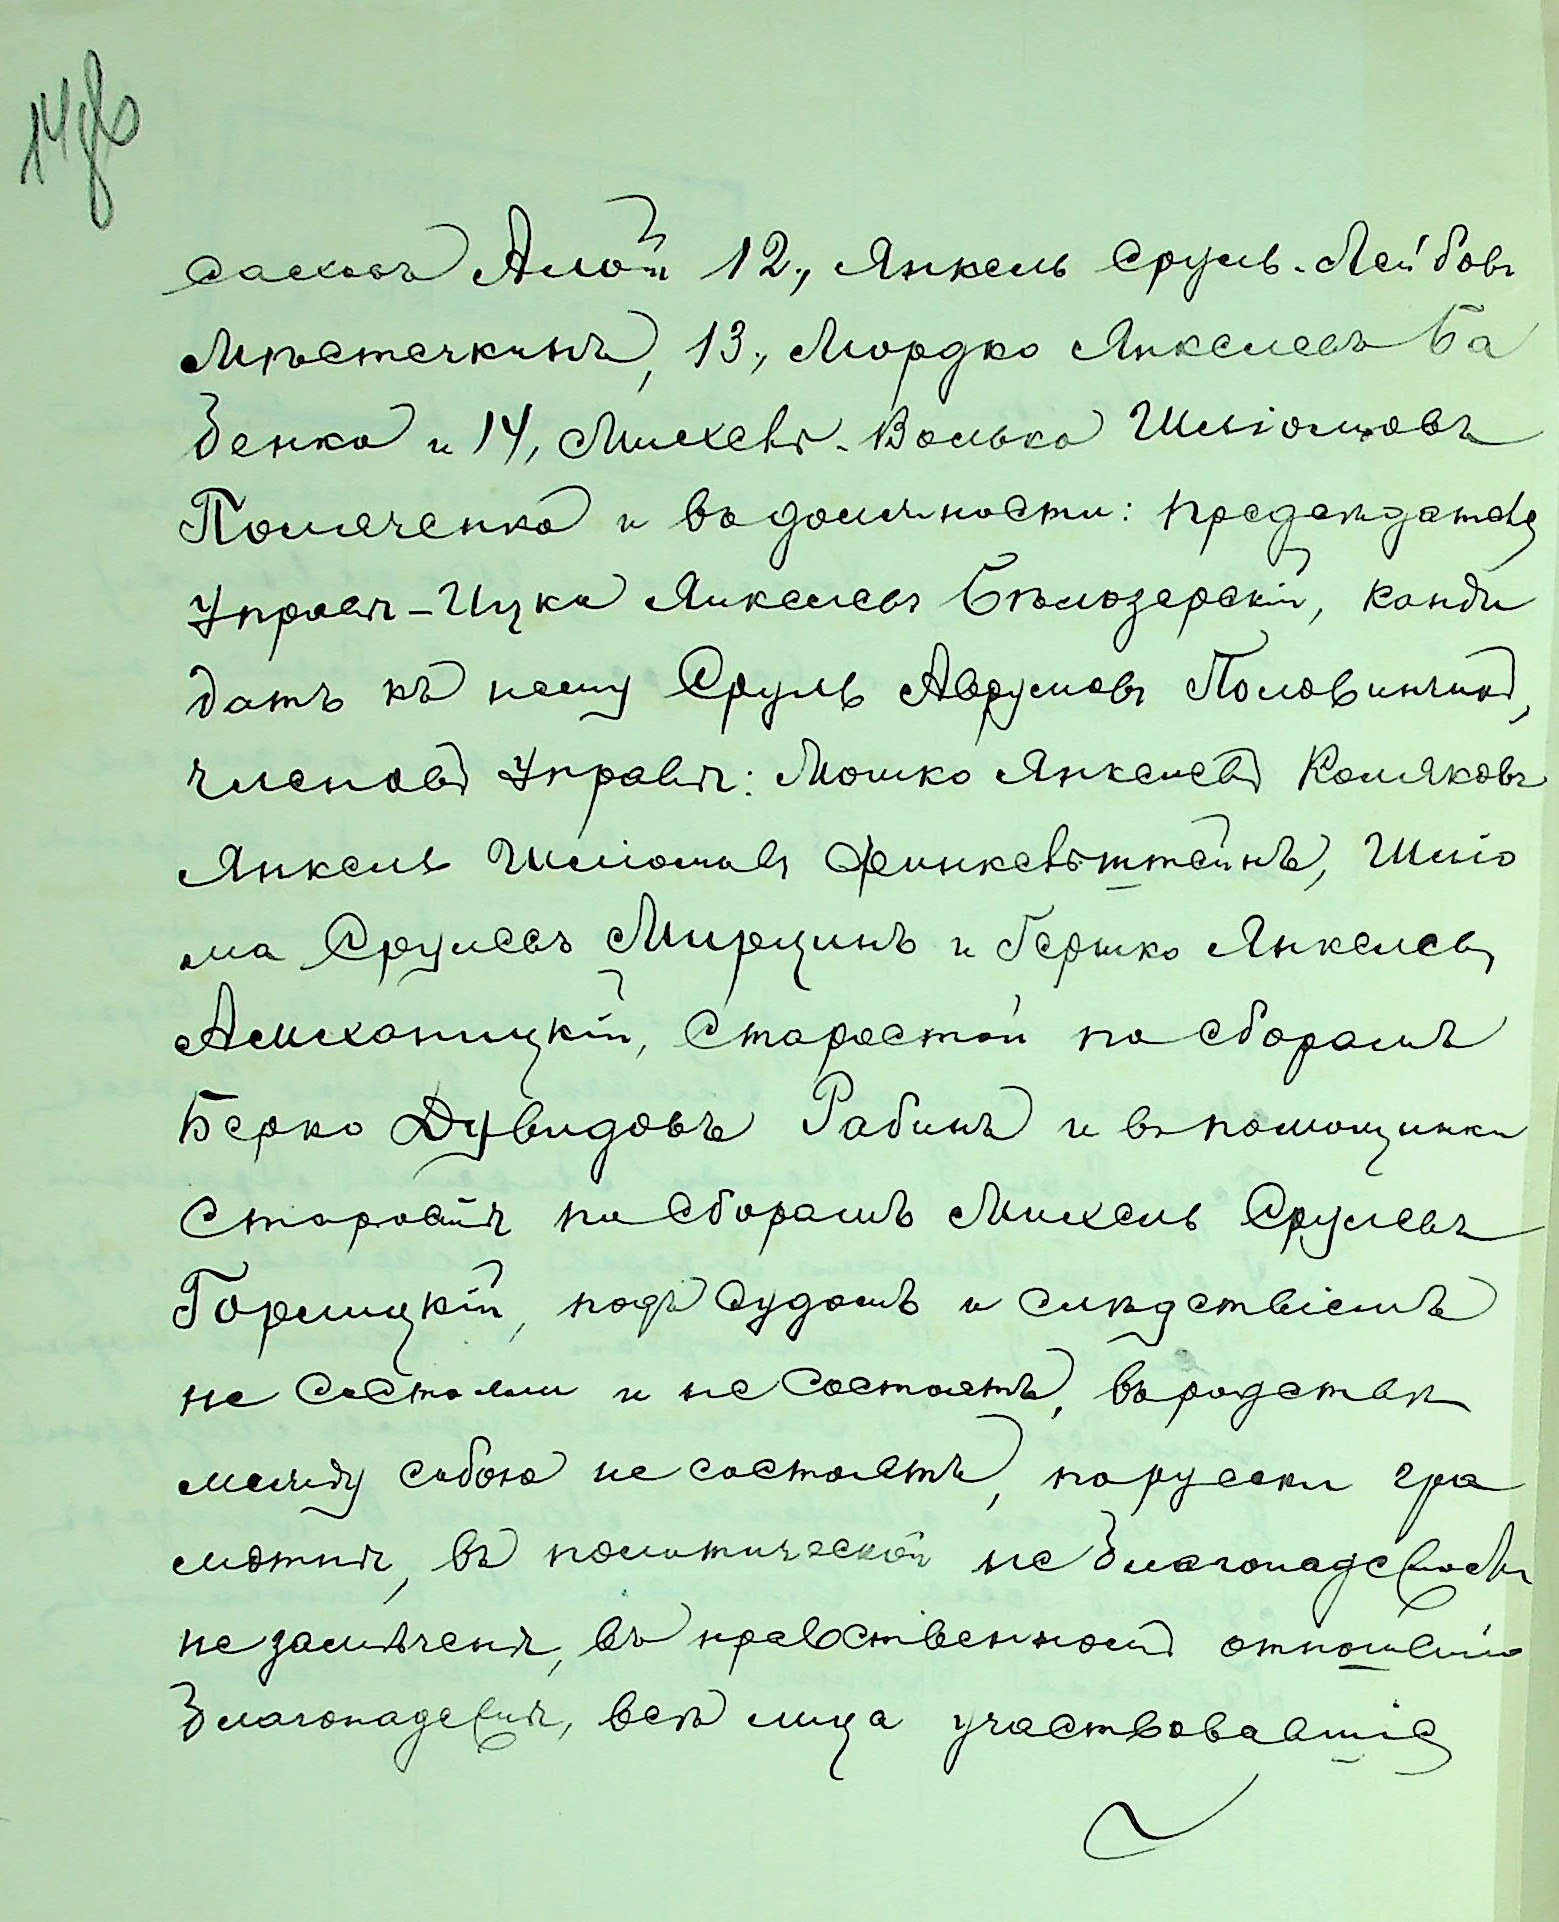 14 об
саковъ Алой 12., Янкель Сруль-Лейбовъ
Мѣстечкинъ, 13., Мордко Янкелевъ Ба
бенко и 14, Михель-Волько Шліомовъ
Поляченко и въ должности: предсѣдателя
Управы – Ицко Янкелевъ Бѣлозерскій, Канди
датъ къ нему Сруль Аврумовъ Половинчикъ,
членовъ Управы: Мошко Янкелевъ Комяковъ
Янкель Шліомовъ Финкельштейнъ, Шліо
ма Срулевъ Мирцинъ и Гершко Янкелевъ
, Старостой по сборамъ
Берко Дувидовъ Рабинъ и въ помощники
Старосты по сборамъ Михель Срулевъ
Горлицкій, подъ судомъ и слѣдствіемъ
не состояли и не состоятъ, въ родствѣ
между собою не состоятъ, по русски гра
мотны, въ политической неблагонадежности
не замѣчены, въ нравственномъ отношеніи
благонадежны, всѣ лица участвовавшія